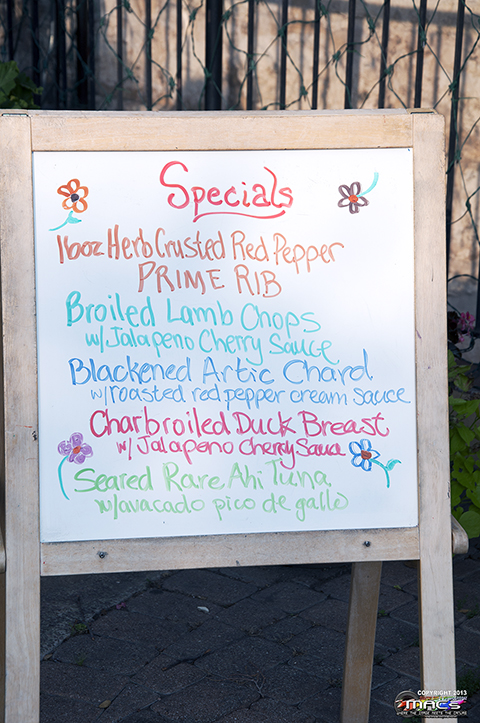 Specials
16oz Herb Crusted Red Pepper
PRIME RIB
Broiled Lamb Chops
w/Jalapeno Cherry Sauce
Blackened Artic Chard
w/roasted red pepper cream sauce
Charbroiled Duck Breast
w/Jalapeno Cherry Saua
Seared Rare Ahi Tuna
w/avacado pico de gallo
COPYRIGHT 2013
MACS